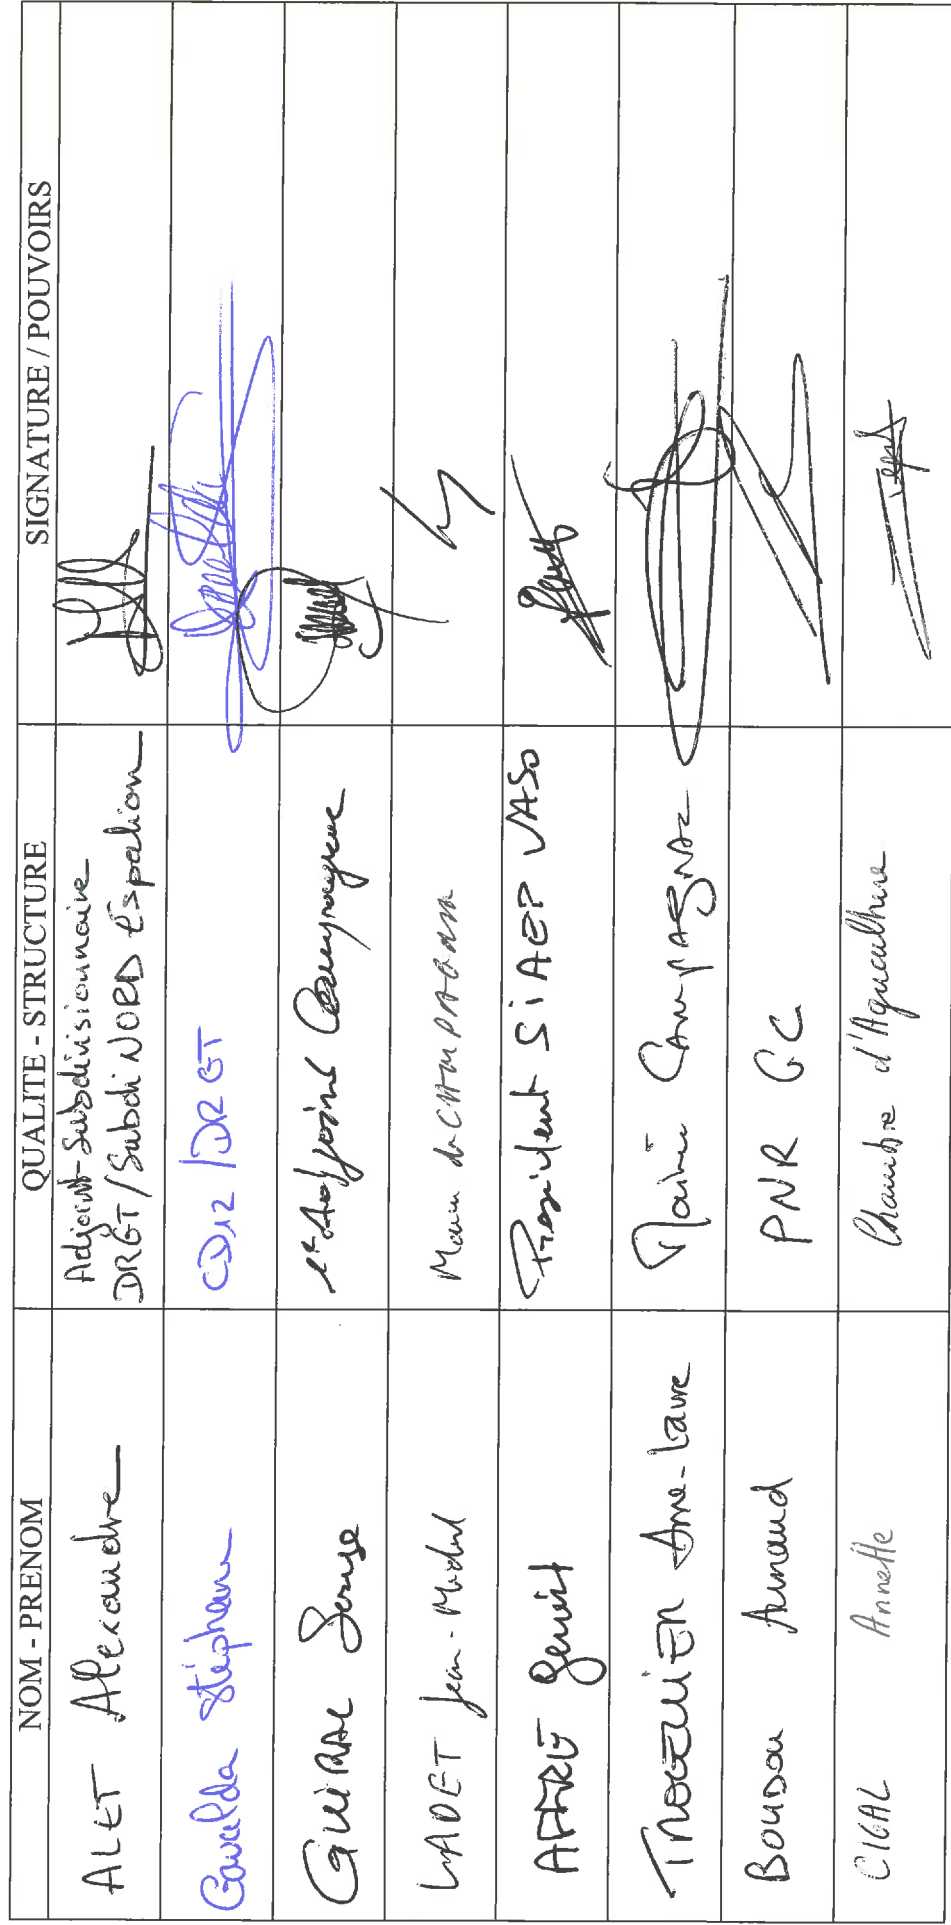 NOM - PRENOM QUALITE - STRUCTURE SIGNATURE / POUVOIRS
ALET Alexandre Adjoint Subdivisionnaire
DRGT / Subdi NORD Espalion
Gavalda Stéphane CD12 / DRGT
GUIRAL Serge 1er Adjoint
LADET Jean-Michel
AFFRE Président SIAEP
TROCELLIER Anne-Laure Maire CAMPAGNAC
BOUDOU Arnaud PNR GC
CIGAL Annette Chambre d'Agriculture